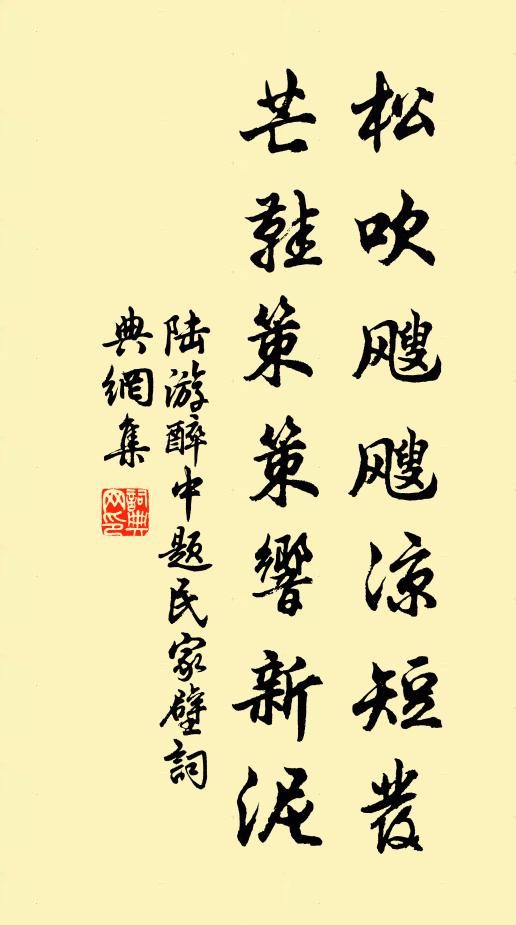 松吹颼颼凉短發
芒鞋策策響新泥
陆游醉中題民家壁詞
典網集
詞典网印